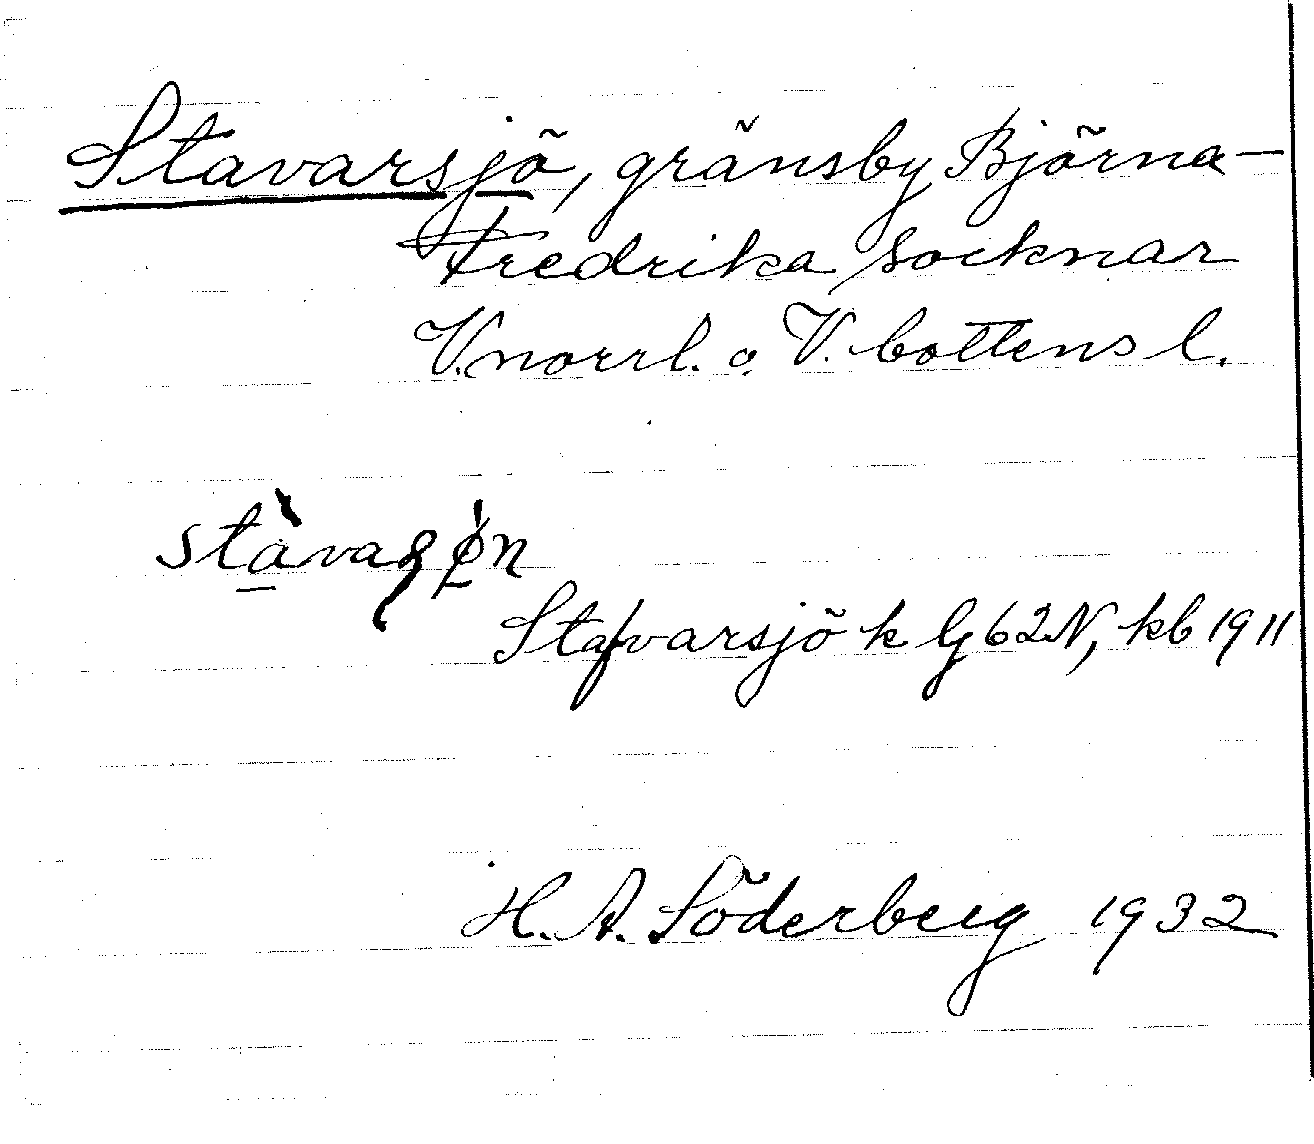 Stavarsjö, gränsby Björna-
Fredrika socknar
V.norrl. o. V. bottens l.
Stafvarsjö k Gg 62 N, kb 1911
H. A. Söderberg 1932